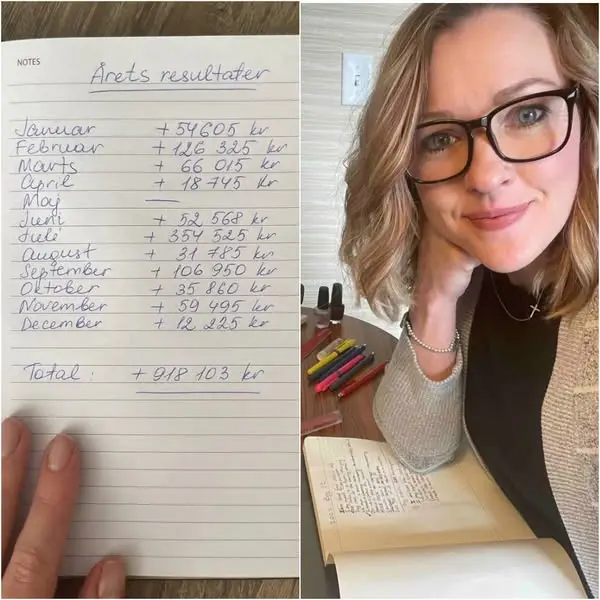 NOTES
Årets resultater
Januar + 54605 kr
Februar + 126 325 kr
Marts + 66 015 kr
April + 18 745 kr
Maj —
Juni + 52 568 kr
Juli + 354 525 kr
august + 31 785 kr
September + 106 950 kr
Oktober + 35 860 kr
November + 59 495 kr
December + 12 225 kr
Total : + 918 103 kr